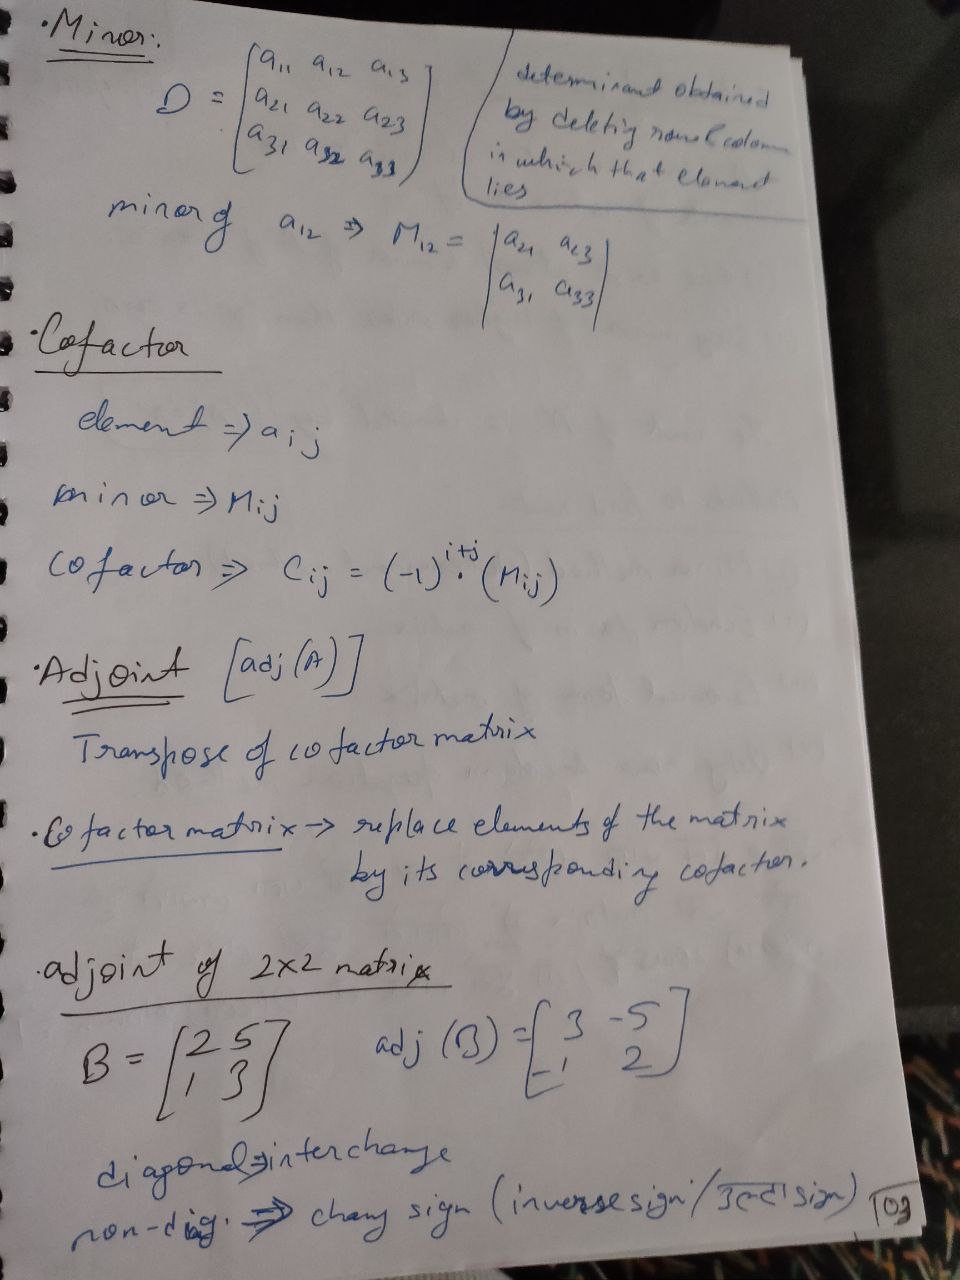 • Minor:
D = [a11 a12 a13
a21 a22 a23
a31 a32 a33]
determinant obtained
by deleting row & column
in which that element
lies
minor of a12 ⇒ M12 = |a21 a23
a31 a33|
• Cofactor
element ⇒ aij
minor ⇒ Mij
cofactor ⇒ Cij = (-1)^(i+j) . (Mij)
• Adjoint [adj (A)]
Transpose of cofactor matrix
• Cofactor matrix → replace elements of the matrix
by its corresponding cofactor.
• adjoint of 2x2 matrix
B = [2 5
1 3]
adj (B) = [3 -5
-1 2]
diagonal ⇒ interchange
non-diag. ⇒ chang sign (inverse sign / उल्टा sign)
103